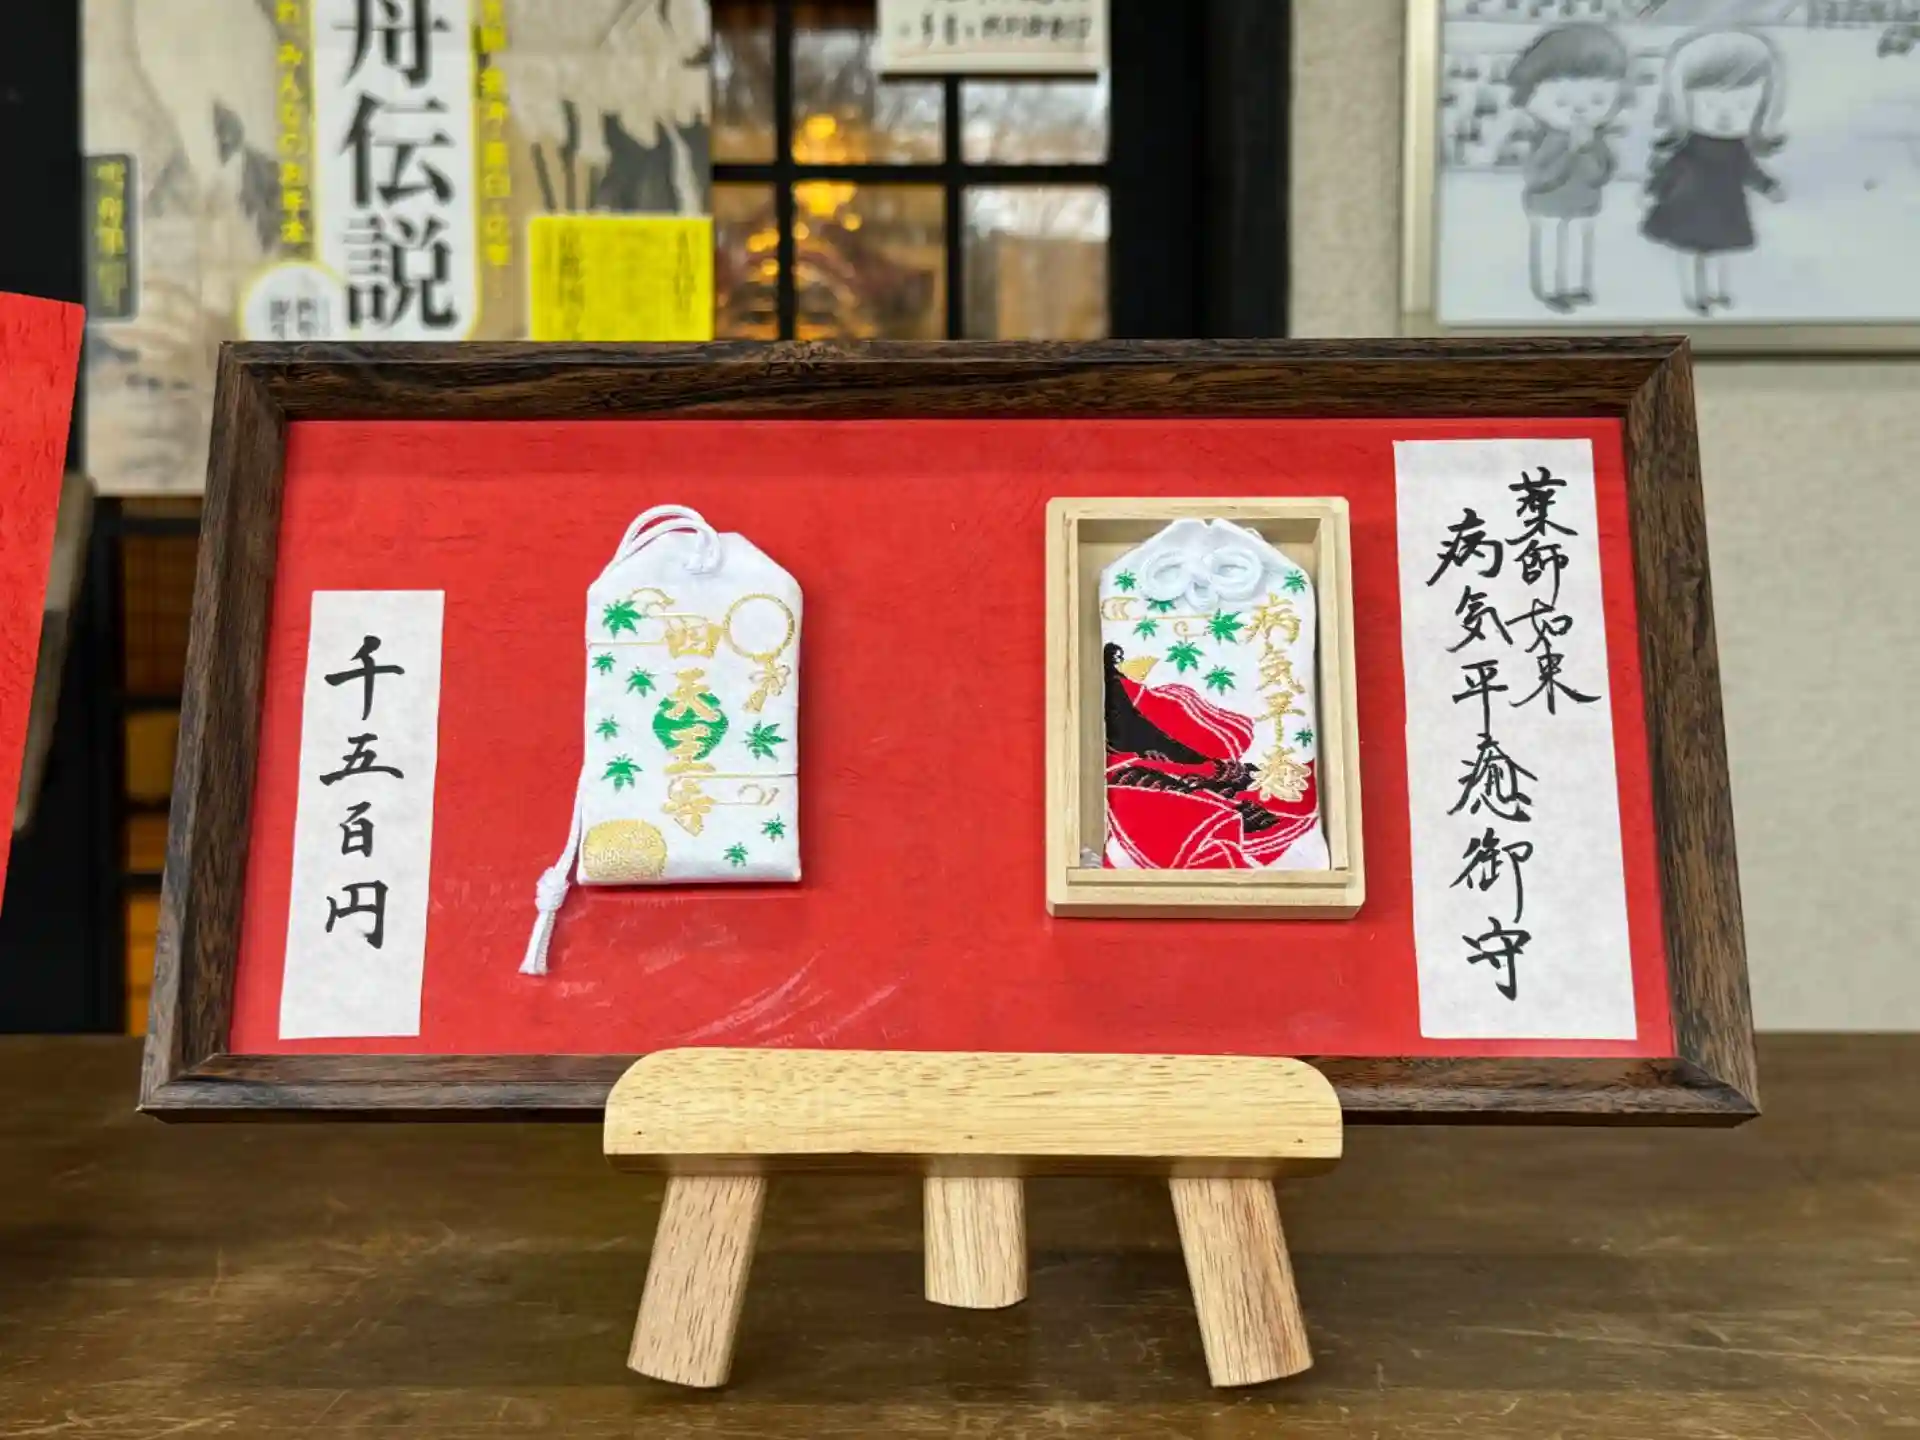 薬師如来
病気平癒御守
病気平癒
四天王寺
千五百円
舟伝説
みんなのお手本